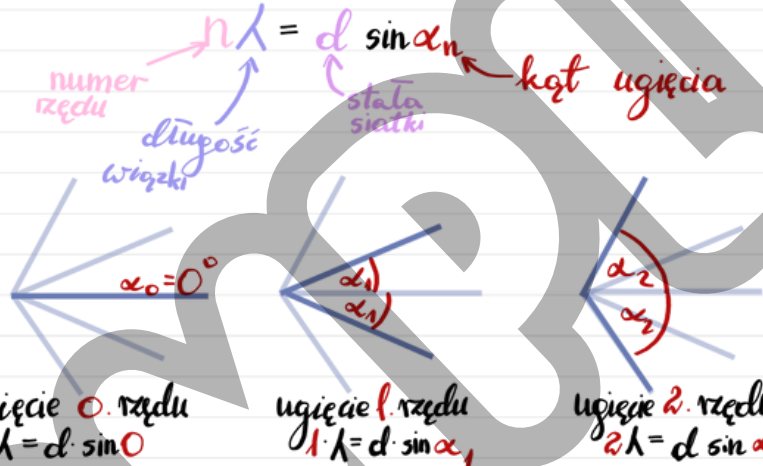 nλ = d sinαn
numer
rzędu
długość
wiązki
stała
siatki
kąt ugięcia
α₀=0°
α₁
α₁
α₂
α₂
ięcie 0. rzędu
λ=d·sin0
ugięcie 1. rzędu
1·λ=d·sinα₁
ugięcie 2. rzęd
2λ=d sin α